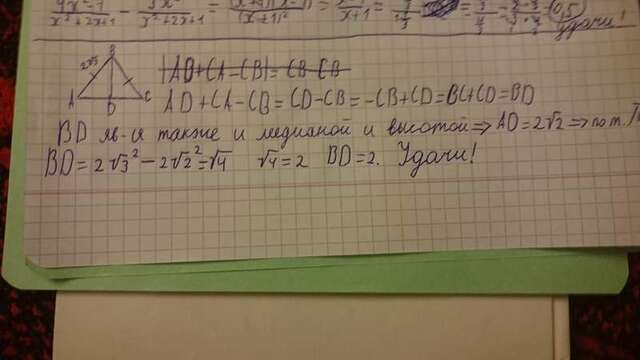 4x²-1/x²+2x+1 - 3x²/x²+2x+1 = (x+1)(x-1)/(x+1)² = x-1/x+1 = 0,5
Удачи!
B
2√3
A D C
|AD+CA-CB|=CB-CB
AD+CA-CB=CD-CB=-CB+CD=BC+CD=BD
BD яв-ся также и медианой и высотой⇒AD=2√2⇒по т.
BD=2√3²-2√2²=√4 √4=2 BD=2. Удачи!